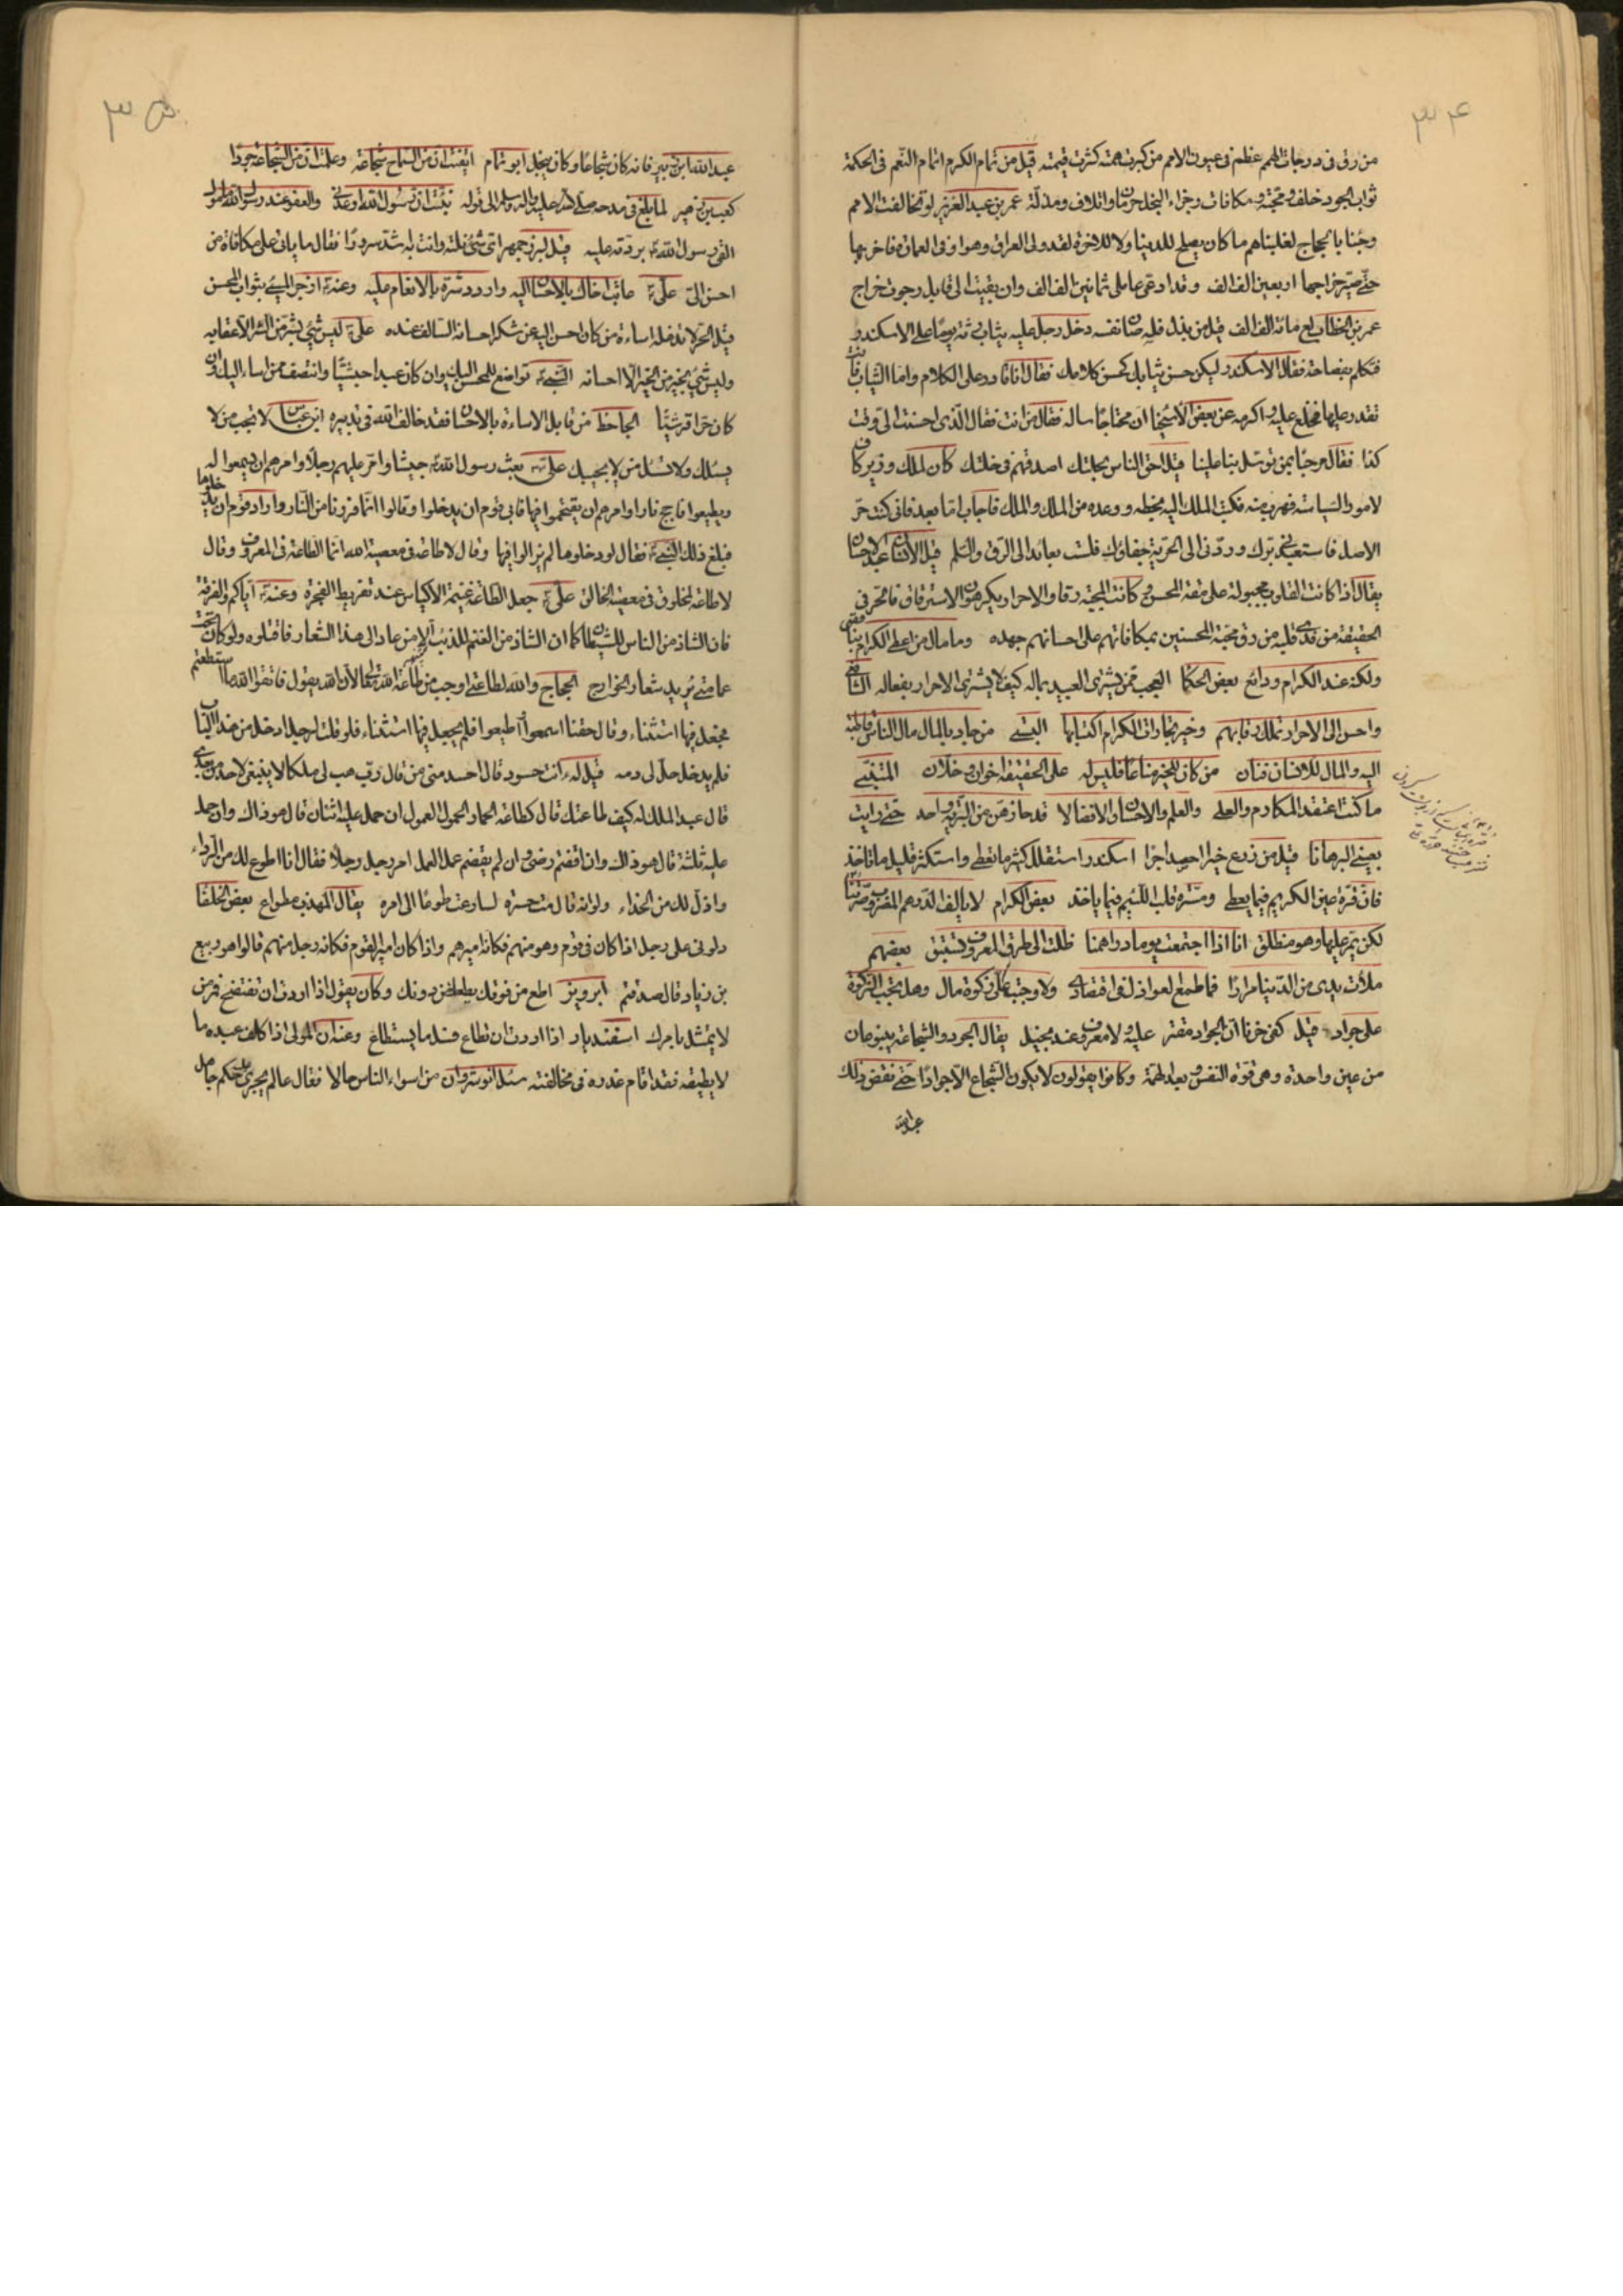 ٣٤
من رقى فى درجات الهمم عظم فى عيون الامم من كبرت همته كثرت قيمته قيل من تمام الكرم اتمام النعم فى الحكمة
ثواب الجود خلف ومحبة ومكافات وجزاء البخل حرمان واتلاف ومذلة عمر بن عبد العزيز لو تخالفت الامم
وجئنا بالحجاج لغلبناهم ما كان يصلح للدنيا ولا للاخرة لقد ولى العراق وهو اوفر فى العمارة فاخر بها
حتى صير خراجها اربعين الف الف وقد ادى عاملى ثمانين الف الف وان بقيت الى قابل رجوت خراج
عمر بن الخطاب مائة الف الف قيل من بذل فلسه صان نفسه دخل رجل عليه ثياب رثة يوما على الاسكندر
فتكلم بفصاحة فقال الاسكندر ليكن حسن ثيابك كحسن كلامك فقال انا قادر على الكلام واما الثياب فانت
تقدر عليها فخلع عليه واكرمه عن بعض الاسخيا ان محتاجا ساله فقال من انت فقال الذى احسنت الى وقت
كذا فقال مرحبا بمن توسل بنا علينا قيل احق الناس بخلتك اصدقهم فى خلتك كان لملك وزير
لامور السياسة فهرب منه فكتب الملك اليه بخطه ووعده من الملك والملك فاجاب اما بعد فانى كنت حر
الاصل فاستعبدنى برك وردنى الى الحرية جفاؤك فلست بعائد الى الرق والسلم قيل الانسان عبد الاحسان
يقال اذا كانت القلوب مجبولة على مقة المحسن وكانت المحبة رقا والاحرار يكرهون الاسترقاق فالحر فى
الحقيقة من فدى قلبه من رق محبة المحسنين بمكافاتهم على احسانهم جهده وما مال من اعطى الكرام
ولكنه عند الكرام ودائع بعض الحكما العجب ممن يشترى العبيد بماله كيف لا يشترى الاحرار بفعاله
واحسن الى الاحرار تملك رقابهم وخير تجارات الكرام اكتسابها البستى من جاد بالمال مال الناس قاطبة
اليه والمال للانسان فتان من كان للخير مناعا فليس له على الحقيقة اخوان وخلان المتنبى
ما كنت اعتقد المكارم والعلى والعلم والاحسان والافضالا قد حازهن عن البرية واحد حتى رايت
بعينى البرهانا قيل من زرع خيرا حصد اجرا اسكندر استقلل كثير ما تعطى واستكثر قليل ما تاخذ
فان قرة عين الكريم فيما يعطى ومسرة قلب اللئيم فيما ياخذ بعض الكرام لا يالف الدرهم المضروب صرتنا
لكن يمر عليها وهو منطلق انا اذا اجتمعت يوما دراهمنا ظلت الى طرق المعروف تستبق بعضهم
ملأت يدى من الدنيا مرارا فما طمع العواذل فى اقتصادى ولا وجبت على زكوة مال وهل تجب الزكوة
على جواد قيل كفى حزنا ان الجواد مقتر عليه ولا معروف عند بخيل يقال الجود والشجاعة ينبوعان
من عين واحدة وهى قوة النفس وبعد الهمة وكانوا يقولون لا يكون الشجاع الا جوادا حتى نقض ذلك
عبد الله
٣٥
عبد الله ابن زبير فانه كان شجاعا وكان يبخل ابو تمام ايقنت ان من السماح شجاعة وعلمت ان من الشجاعة جودا
كعب بن زهير لما بلغ فى مدحه صلى الله عليه واله وسلم الى قوله نبئت ان رسول الله اوعدنى والعفو عند رسول الله مامول
القى رسول الله بردته عليه قيل لبزرجمهر اى شئ نلته وانت به اشد سرورا فقال ما يأتى على مكافاة من
احسن الى على عاتب اخاك بالاحسان اليه واردد شره بالانعام عليه وعنه ازجر المسئ بثواب المحسن
قيل الحر لا تدخله اساءة من كان احسن اليه عن شكر احسانه السالف عنده على ليس شئ بشر من الشر الا عقابه
وليس شئ بخير من الخير الا احسانه الشعبى تواضع للمحسن اليك وان كان عبدا حبشيا وانتصف ممن اساء اليك وان
كان حرا قرشيا الجاحظ من قابل الاساءة بالاحسان فقد خالف الله فى تدبيره ابن عباس لا تجب من لا
يسئلك ولا تسئل من لا يجيبك على بعث رسول الله جيشا وامر عليهم رجلا وامرهم ان يسمعوا له
ويطيعوا فاجج نارا وامرهم ان يقتحموا فيها فابى قوم ان يدخلوا وقالوا انما فررنا من النار واراد قوم ان يدخلوها
فبلغ ذلك النبى فقال لو دخلوها لم يزالوا فيها وقال لا طاعة فى معصية الله انما الطاعة فى المعروف وقال
لا طاعة لمخلوق فى معصية الخالق على جعل الطاعة غنيمة الاكياس عند تفريط الفجرة وعنه اياكم والفرقة
فان الشاذ من الناس للشيطان كما ان الشاذ من الغنم للذئب الا من عاد الى هذا الشعار فاقتلوه ولو كان تحت
عمامتى يريد شعار الخوارج الحجاج والله لطاعتى اوجب من طاعة الله تعالى لان الله يقول فاتقوا الله ما استطعتم
فجعل فيها استثناء وقال حقنا اسمعوا واطيعوا فلم يجعل فيها استثناء فلو قلت لرجل ادخل من هذا الباب
فلم يدخل حل لى دمه قيل له انت حسود قال احسد منى من قال رب هب لى ملكا لا ينبغى لاحد من بعدى
قال عبد الملك له كيف طاعتك قال كطاعة الحمار الحمول العمول ان حمل عليه اثنان قال هو ذاك وان حمل
عليه ثلثة قال هو ذاك وان اقضم رضى وان لم يقضم عمل العمل امر رجل رجلا فقال انا اطوع لك من الرداء
واذل لك من الحذاء ولو انه قال مت حسرة لسارعت طوعا الى امره يقال المهذب مطواع بعض الخلفا
دلونى على رجل اذا كان فى قوم وهو منهم فكانه اميرهم واذا كان امير القوم فكانه رجل منهم قالوا هو ربيع
بن زياد قال صدقتم ابرويز اطع من فوقك يطعك من دونك وكان يقول اذا اردت ان تفتضح فمر من
لا يمتثل بامرك اسفنديار اذا اردت ان تطاع فسل ما يستطاع وعنه ان المولى اذا كلف عبده ما
لا يطيقه فقد اقام عذره فى مخالفته سئل انوشروان من اسواء الناس حالا فقال عالم يجرى عليه حكم جاهل